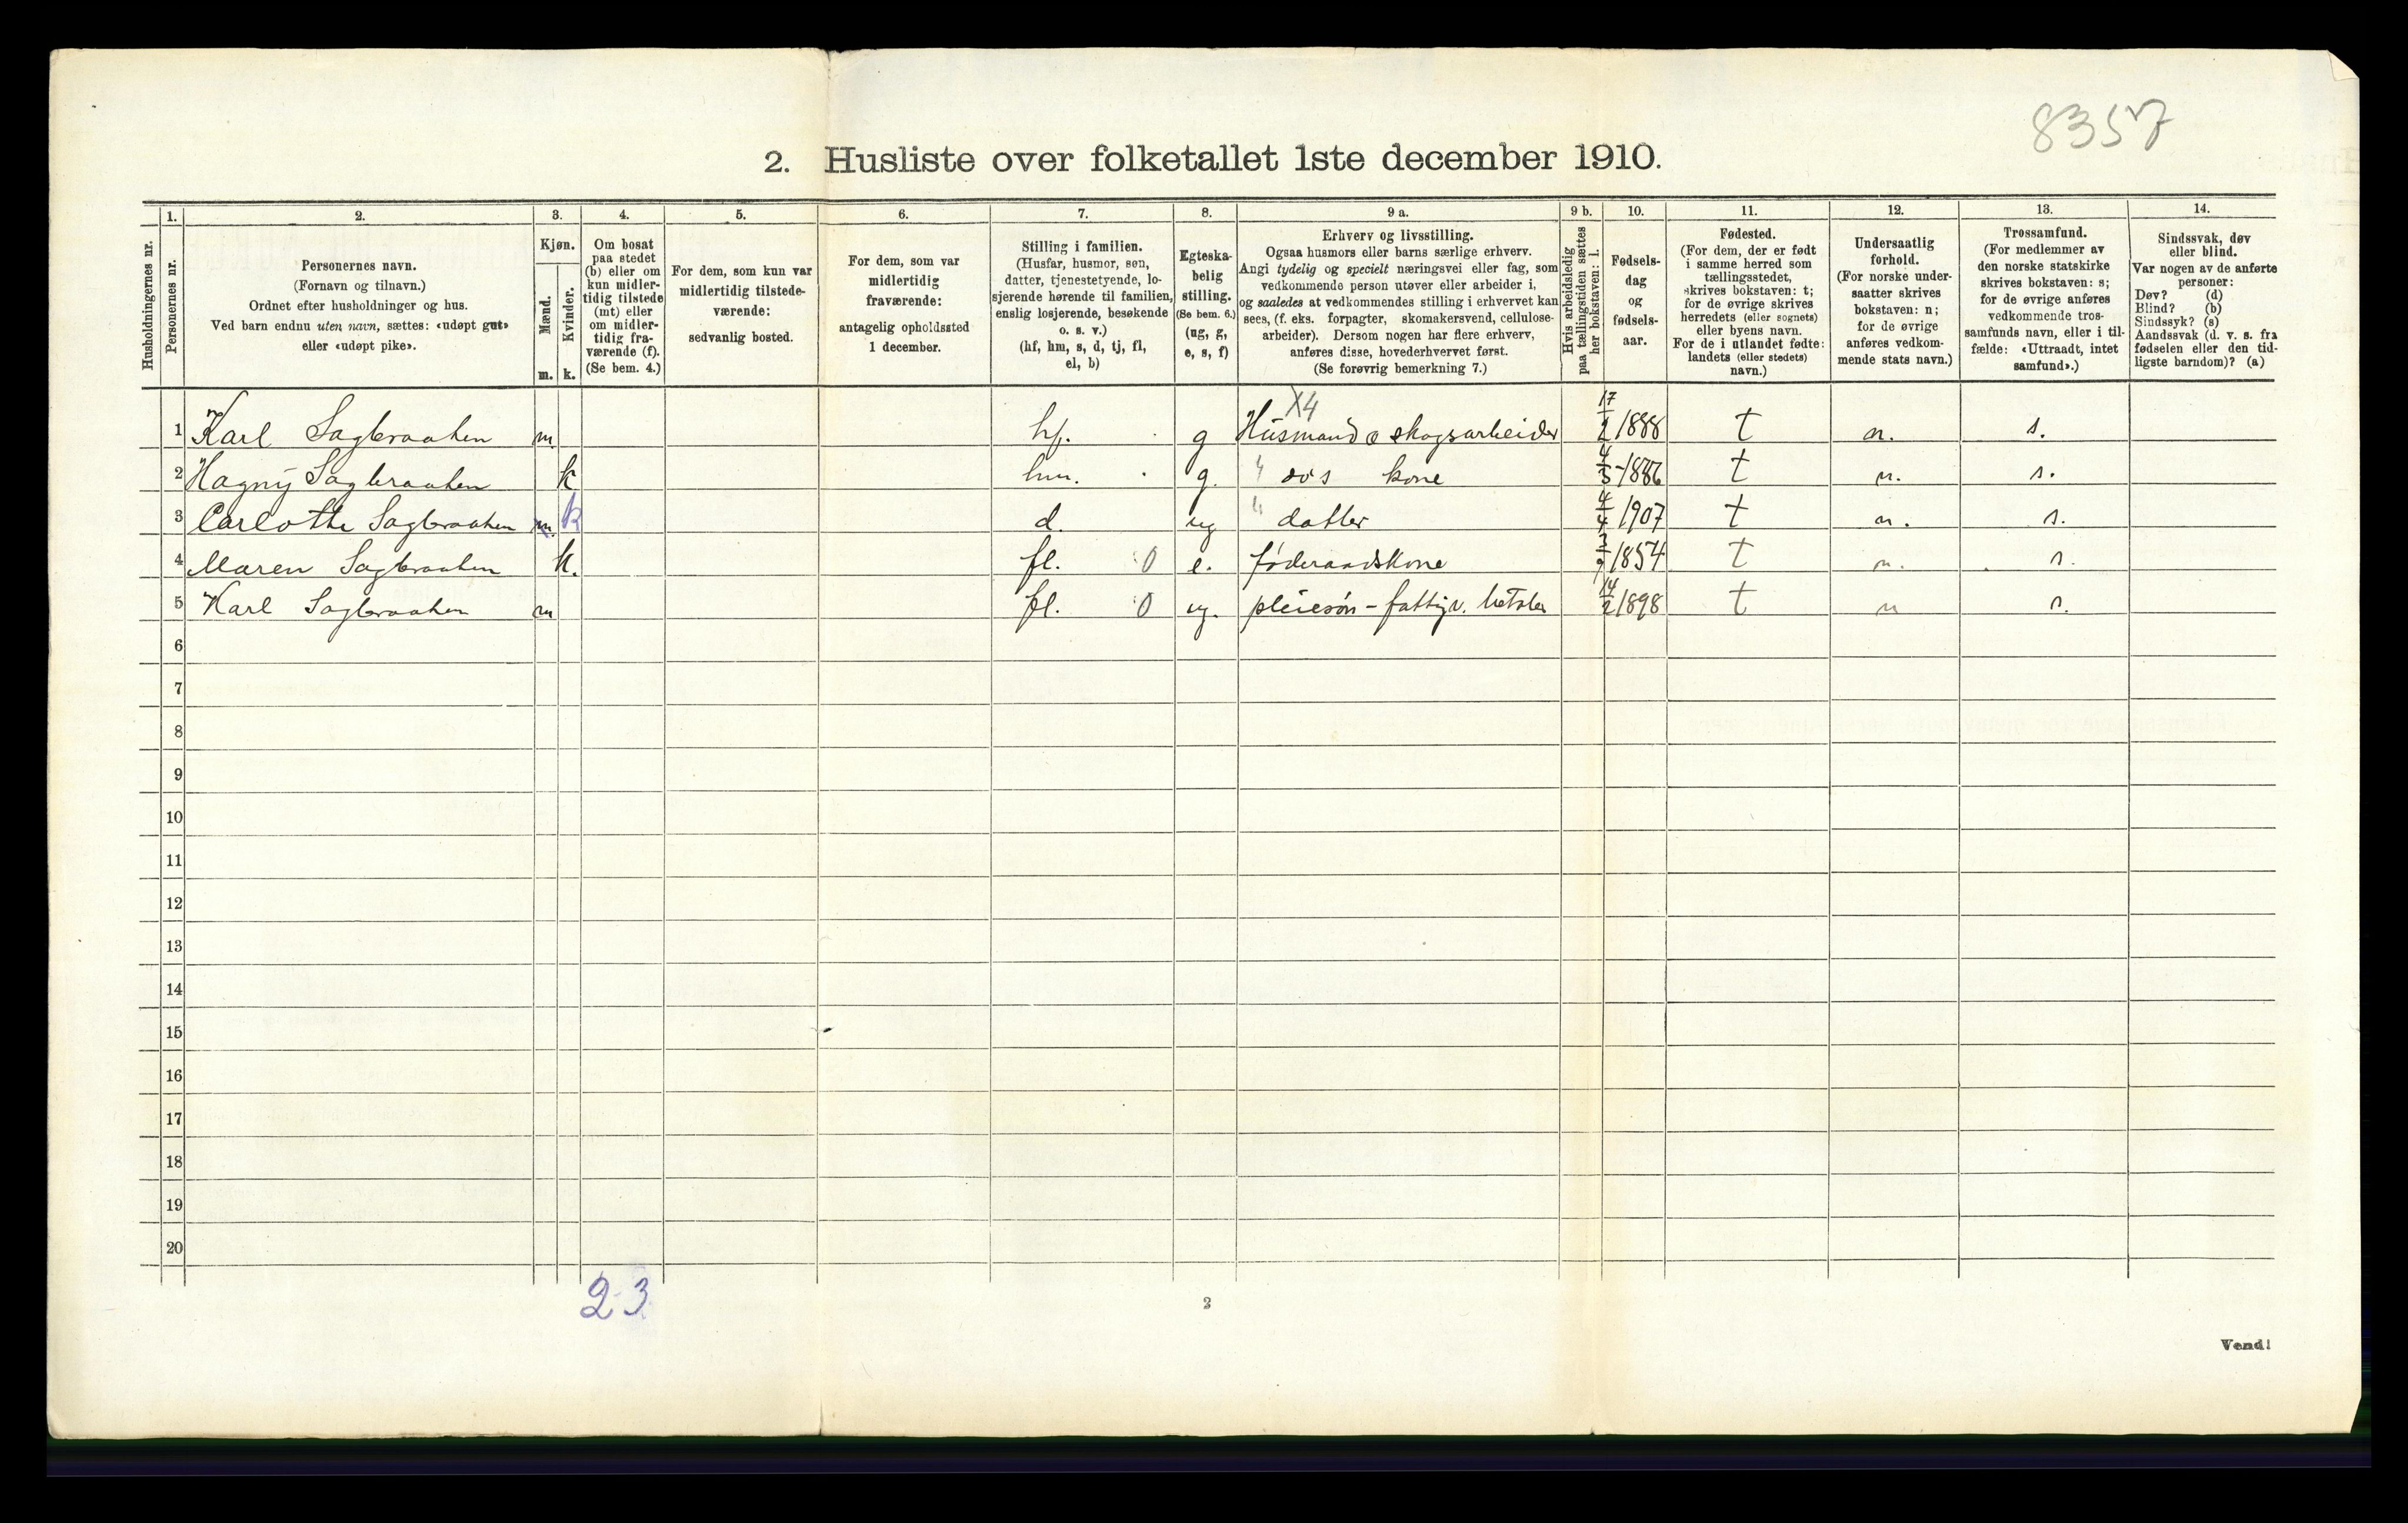 8357
2. Husliste over folketallet 1ste december 1910.
Husholdningernes nr.
1.
Personernes nr.
2.
Personernes navn.
(Fornavn og tilnavn.)
Ordnet efter husholdninger og hus.
Ved barn endnu uten navn, sættes: «udøpt gut»
eller «udøpt pike».
3.
Kjøn.
Mænd.
Kvinder.
m. k.
4.
Om bosat
paa stedet
(b) eller om
kun midler-
tidig tilstede
(mt) eller
om midler-
tidig fra-
værende (f).
(Se bem. 4.)
5.
For dem, som kun var
midlertidig tilstede-
værende:
sedvanlig bosted.
6.
For dem, som var
midlertidig
fraværende:
antagelig opholdssted
1 december.
7.
Stilling i familien.
(Husfar, husmor, søn,
datter, tjenestetyende, lo-
sjerende hørende til familien,
enslig losjerende, besøkende
o. s. v.)
(hf, hm, s, d, tj, fl,
el, b)
8.
Egteska-
belig
stilling.
(Se bem. 6.)
(ug, g,
e, s, f)
9 a.
Erhverv og livsstilling.
Ogsaa husmors eller barns særlige erhverv.
Angi tydelig og specielt næringsvei eller fag, som
vedkommende person utøver eller arbeider i,
og saaledes at vedkommendes stilling i erhvervet kan
sees, (f. eks. forpagter, skomakersvend, cellulose-
arbeider). Dersom nogen har flere erhverv,
anføres disse, hovederhvervet først.
(Se forøvrig bemerkning 7.)
9 b.
Hvis arbeidsledig
paa tællingstiden sættes
her bokstaven: l.
10.
Fødsels-
dag
og
fødsels-
aar.
11.
Fødested.
(For dem, der er født
i samme herred som
tællingsstedet,
skrives bokstaven: t;
for de øvrige skrives
herredets (eller sognets)
eller byens navn.
For de i utlandet fødte:
landets (eller stedets)
navn.)
12.
Undersaatlig
forhold.
(For norske under-
saatter skrives
bokstaven: n;
for de øvrige
anføres vedkom-
mende stats navn.)
13.
Trossamfund.
(For medlemmer av
den norske statskirke
skrives bokstaven: s;
for de øvrige anføres
vedkommende tros-
samfunds navn, eller i til-
fælde: «Uttraadt, intet
samfund».)
14.
Sindssvak, døv
eller blind.
Var nogen av de anførte
personer:
Døv? (d)
Blind? (b)
Sindssyk? (s)
Aandssvak (d. v. s. fra
fødselen eller den tid-
ligste barndom)? (a)
X4
1 Karl Sagbraaten m hf. g Husmand o skogsarbeider 17/2 1888 t n. s.
2 Hagny Sagbraaten k hm. g. 4 do's kone 4/3 - 1886 t n. s.
3 Carlotte Sagbraaten m. k d. ug 4 datter 4/4 1907 t n. s.
4 Maren Sagbraaten k. fl. 0 e. føderaadskone 3/9 1854 t n. s.
5 Karl Sagbraaten m fl. 0 ug. pleiesøn - fattigv. betaler 14/2 1898 t n s.
6
7
8
9
10
11
12
13
14
15
16
17
18
19
20
2-3
2
Vend!